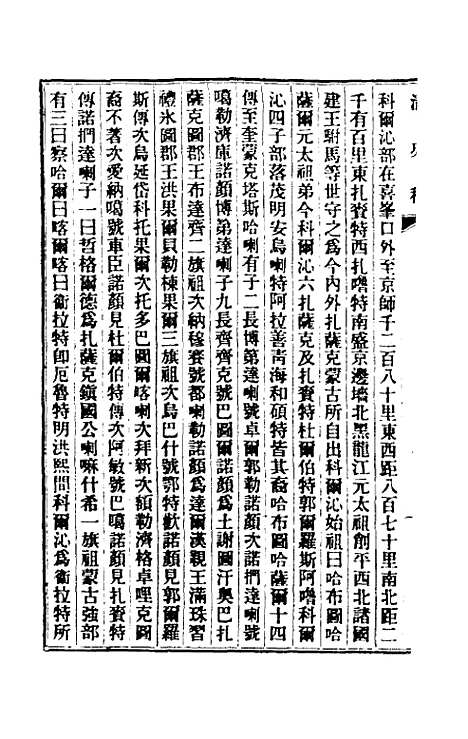 清史稿
科爾沁部在喜峯口外至京師千二百八十里東西距八百七十里南北距二
千有百里東扎賚特西扎嚕特南盛京邊墻北黑龍江元太祖創平西北諸國
建王駙馬等世守之爲今內外扎薩克蒙古所自出科爾沁始祖曰哈布圖哈
薩爾元太祖弟今科爾沁六扎薩克及扎賚特杜爾伯特郭爾羅斯阿嚕科爾
沁四子部落茂明安烏喇特阿拉善青海和碩特皆其裔哈布圖哈薩爾十四
傳至奎蒙克塔斯哈喇有子二長博第達喇號卓爾郭勒諾顏次諾捫達喇號
噶勒濟庫諾顏博第達喇子九長齊齊克號巴圖爾諾顏爲土謝圖汗奧巴扎
薩克圖郡王布達齊二旗祖次納穆賽號都喇勒諾顏爲達爾漢親王滿珠習
禮冰圖郡王洪果爾貝勒棟果爾三旗祖次烏巴什號鄂特歡諾顏見郭爾羅
斯傳次烏延岱科托果爾次托多巴圖爾喀喇次拜新次額勒濟格卓哩克圖
裔不著次愛納噶號車臣諾顏見杜爾伯特傳次阿敏號巴噶諾顏見扎賚特
傳諾捫達喇子一曰哲格爾德爲扎薩克鎮國公喇嘛什希一旗祖蒙古強部
有三曰察哈爾曰喀爾喀曰衞拉特卽厄魯特明洪熙間科爾沁爲衞拉特所
一